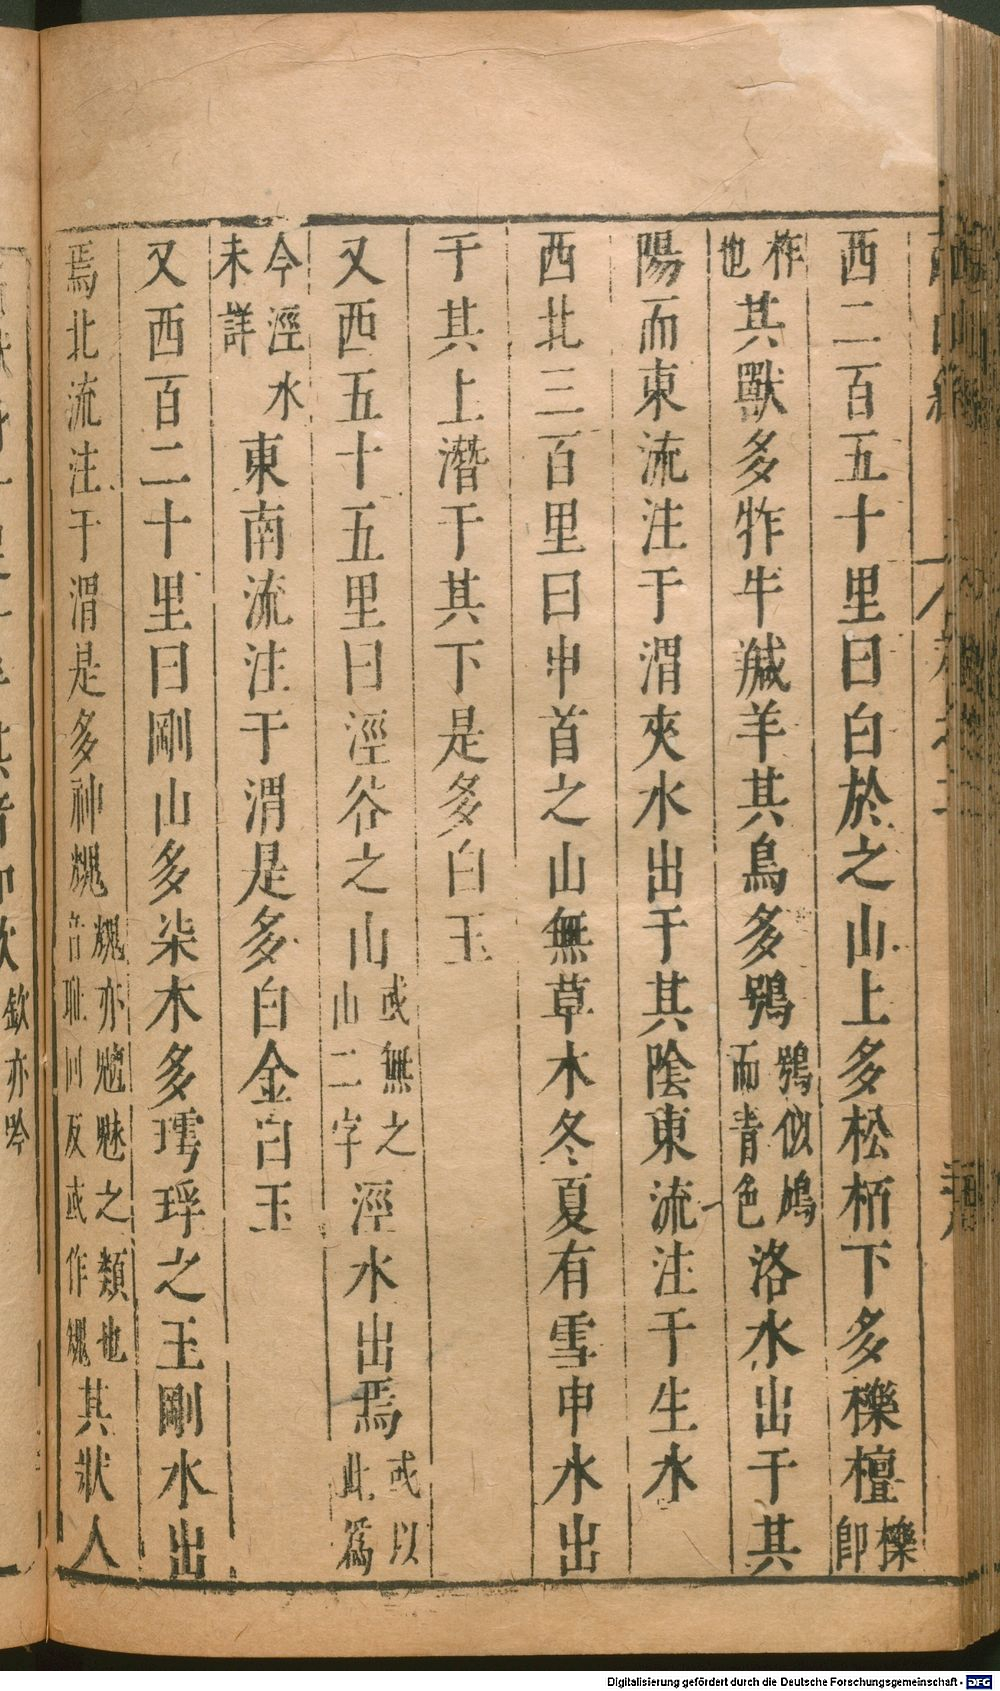 西二百五十里曰白於之山上多松栢下多櫟檀櫟即
柞也其獸多㸲牛羬羊其鳥多鴞鴞似鳩而青色洛水出于其
陽而東流注于渭夾水出于其陰東流注于生水
西北三百里曰申首之山無草木冬夏有雪申水出
于其上潛于其下是多白玉
又西五十五里曰涇谷之山或無之山二字涇水出焉或以此為
今涇水未詳東南流注于渭是多白金白玉
又西百二十里曰剛山多柒木多㻬琈之玉剛水出
焉北流注于渭是多神䰠䰠亦魑魅之類也音耻回反或作䰠其狀人
欽亦吟
Digitalisierung gefördert durch die Deutsche Forschungsgemeinschaft - DFG